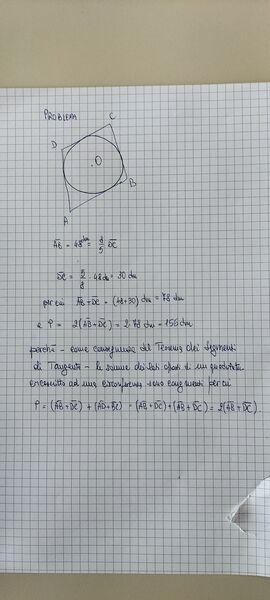 PROBLEMA
C
D
O
B
A
AB = 48 dm = 8/5 DC
DC = 5/8 · 48 dm = 30 dm
per cui AB + DC = (48+30) dm = 78 dm
e P = 2(AB+DC) = 2·78 dm = 156 dm
perché - come conseguenza del Teorema dei Segmenti
di Tangente - le somme dei lati opposti di un quadrilatero
circoscritto ad una circonferenza sono congruenti per cui
P = (AB+DC) + (AD+BC) = (AB+DC)+(AB+DC) = 2(AB+DC).